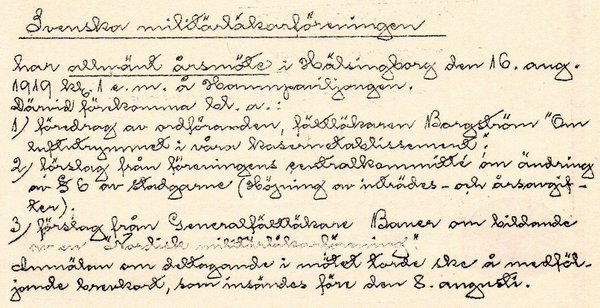 Svenska militärläkarföreningen
har allmänt årsmöte i Hälsingborg den 16. aug.
1919 kl. 1 e.m. å Hamnpaviljongen.
Därvid förekomma bl. a.:
1) föredrag av ordföranden, fältläkaren Bergström "Om
luftutrymmet i våra kasernetablissement";
2) förslag från föreningens centralkommitté om ändring
av § 6 av stadgarne (Höjning av inträdes- och årsavgif-
ter).
3) förslag från Generalfältläkare Bauer om bildande
av en "Nordisk militärläkarförening"
Anmälan om deltagande i mötet torde ske å medföl-
jande brevkort, som insändes före den 8. augusti.